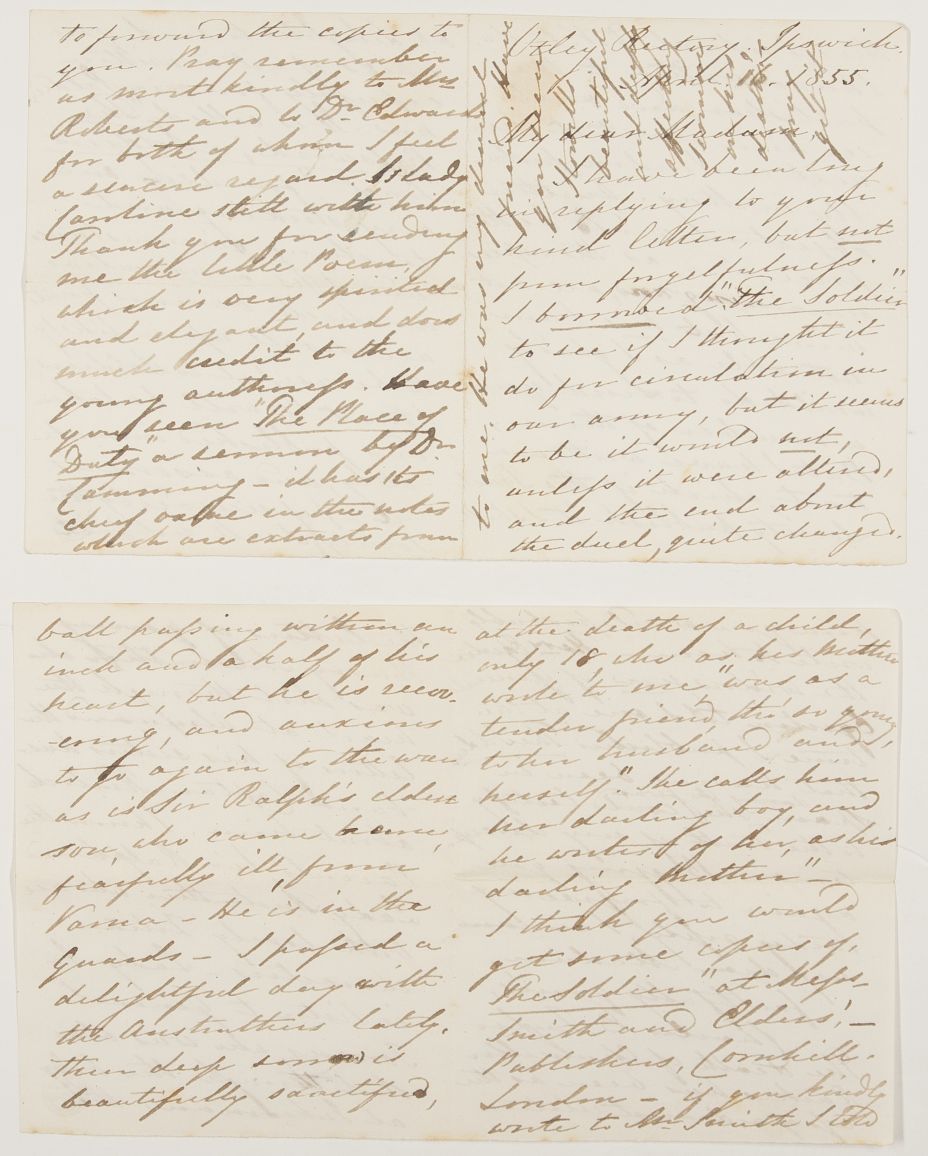 to forward the copies to
you. Pray remember
us most kindly to Mrs
Roberts and to Dr. Edwards
for both of whom I feel
a sincere regard. Is Lady
Caroline still with him
Thank you for sending
me the little Poem,
which is very spirited
and elegant, and does
much credit to the
young authoress. Have
you seen "The Place of
Duty" a sermon by Dr
Cumming - it has its
chief value in the notes
which are extracts from
to me. He was my dearest
friend. Have
you seen
beautiful
Otley Rectory. Ipswich.
April 16. 1855.
My dear Madam,
I have been long
in replying to your
kind letter, but not
from forgetfulness.
I borrowed "The Soldier"
to see if I thought it
do for circulation in
our army, but it seems
to be it would not,
unless it were altered,
and the end about
the duel, quite changed.
ball passing within an
inch and a half of his
heart, but he is recov-
ering, and anxious
to go again to the war
as is Sir Ralph's eldest
son, who came home,
fearfully ill, from
Varna - He is in the
Guards - I passed a
delightful day with
the Anstruthers lately.
Their deep sorrow is
beautifully sanctified,
at the death of a child,
only 18, who as his Mother
wrote to me "was as a
tender friend, tho' so young,
to her husband and
herself." She calls him
her darling boy, and
he writes of her, as his
darling Mother" -
I think you would
get some copies of,
"The Soldier" at Messrs
Smith and Elders', -
Publishers, Cornhill.
London - if you kindly
write to Mr. Smith I told